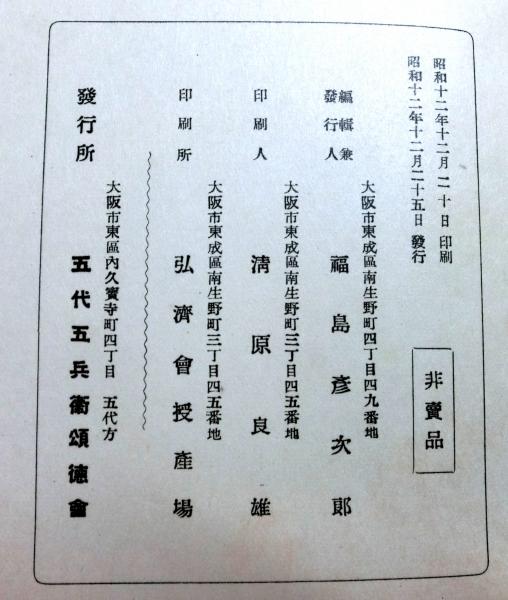 昭和十二年十二月二十日 印刷
昭和十二年十二月二十五日 發行
非賣品
大阪市東成區南生野町四丁目四九番地
編輯兼
發行人
福島彥次郎
大阪市東成區南生野町三丁目四五番地
印刷人
淸原良雄
大阪市東成區南生野町三丁目四五番地
印刷所
弘濟會授產場
大阪市東區內久寶寺町四丁目 五代方
發行所
五代五兵衞頌德會